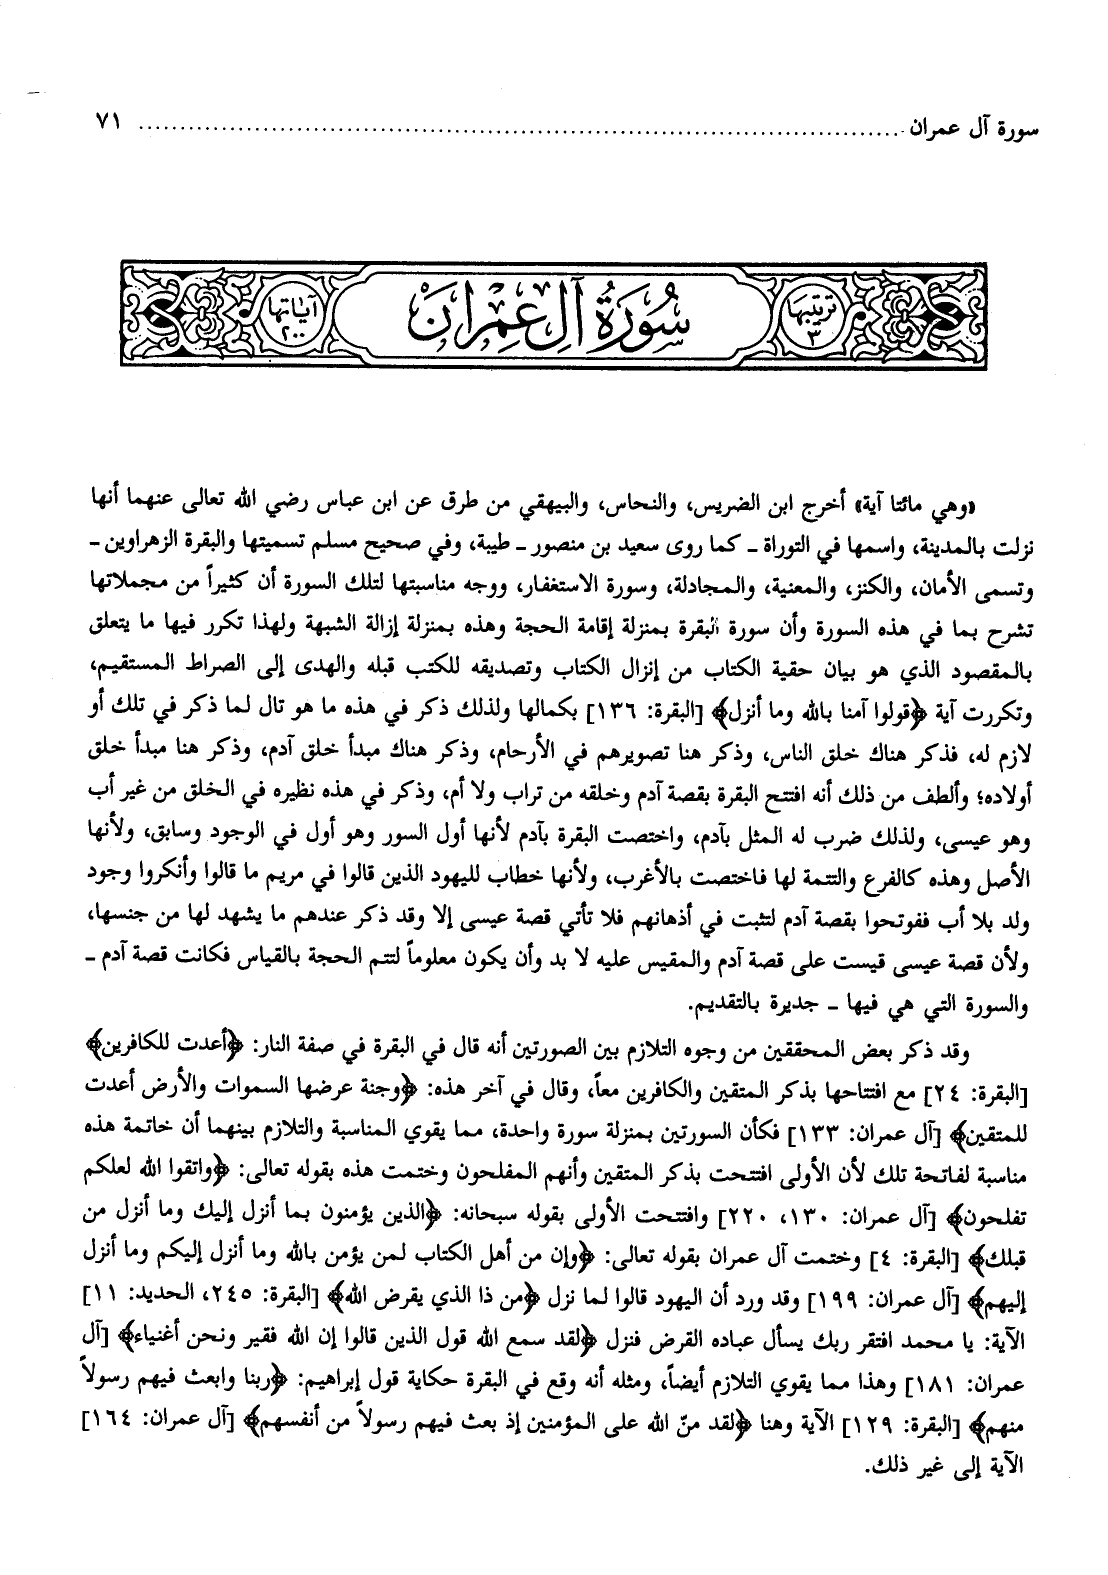 سورة آل عمران ........................................................................... ٧١
ترتيبها
٣
سُورَةُ آلِ عِمْرَان
آيَاتها
٢٠٠
«وهي مائتا آية» أخرج ابن الضريس، والنحاس، والبيهقي من طرق عن ابن عباس رضي الله تعالى عنهما أنها
نزلت بالمدينة، واسمها في التوراة ـ كما روى سعيد بن منصور ـ طيبة، وفي صحيح مسلم تسميتها والبقرة الزهراوين ـ
وتسمى الأمان، والكنز، والمعنية، والمجادلة، وسورة الاستغفار، ووجه مناسبتها لتلك السورة أن كثيراً من مجملاتها
تشرح بما في هذه السورة وأن سورة البقرة بمنزلة إقامة الحجة وهذه بمنزلة إزالة الشبهة ولهذا تكرر فيها ما يتعلق
بالمقصود الذي هو بيان حقية الكتاب من إنزال الكتاب وتصديقه للكتب قبله والهدى إلى الصراط المستقيم،
وتكررت آية ﴿قولوا آمنا بالله وما أنزل﴾ [البقرة: ١٣٦] بكمالها ولذلك ذكر في هذه ما هو تال لما ذكر في تلك أو
لازم له، فذكر هناك خلق الناس، وذكر هنا تصويرهم في الأرحام، وذكر هناك مبدأ خلق آدم، وذكر هنا مبدأ خلق
أولاده؛ وألطف من ذلك أنه افتتح البقرة بقصة آدم وخلقه من تراب ولا أم، وذكر في هذه نظيره في الخلق من غير أب
وهو عيسى، ولذلك ضرب له المثل بآدم، واختصت البقرة بآدم لأنها أول السور وهو أول في الوجود وسابق، ولأنها
الأصل وهذه كالفرع والتتمة لها فاختصت بالأغرب، ولأنها خطاب لليهود الذين قالوا في مريم ما قالوا وأنكروا وجود
ولد بلا أب ففوتحوا بقصة آدم لتثبت في أذهانهم فلا تأتي قصة عيسى إلا وقد ذكر عندهم ما يشهد لها من جنسها،
ولأن قصة عيسى قيست على قصة آدم والمقيس عليه لا بد وأن يكون معلوماً لتتم الحجة بالقياس فكانت قصة آدم ـ
والسورة التي هي فيها ـ جديرة بالتقديم.
وقد ذكر بعض المحققين من وجوه التلازم بين الصورتين أنه قال في البقرة في صفة النار: ﴿أعدت للكافرين﴾
[البقرة: ٢٤] مع افتتاحها بذكر المتقين والكافرين معاً، وقال في آخر هذه: ﴿وجنة عرضها السموات والأرض أعدت
للمتقين﴾ [آل عمران: ١٣٣] فكأن السورتين بمنزلة سورة واحدة، مما يقوي المناسبة والتلازم بينهما أن خاتمة هذه
مناسبة لفاتحة تلك لأن الأولى افتتحت بذكر المتقين وأنهم المفلحون وختمت هذه بقوله تعالى: ﴿واتقوا الله لعلكم
تفلحون﴾ [آل عمران: ١٣٠، ٢٢٠] وافتتحت الأولى بقوله سبحانه: ﴿الذين يؤمنون بما أنزل إليك وما أنزل من
قبلك﴾ [البقرة: ٤] وختمت آل عمران بقوله تعالى: ﴿وإن من أهل الكتاب لمن يؤمن بالله وما أنزل إليكم وما أنزل
إليهم﴾ [آل عمران: ١٩٩] وقد ورد أن اليهود قالوا لما نزل ﴿من ذا الذي يقرض الله﴾ [البقرة: ٢٤٥، الحديد: ١١]
الآية: يا محمد افتقر ربك يسأل عباده القرض فنزل ﴿لقد سمع الله قول الذين قالوا إن الله فقير ونحن أغنياء﴾ [آل
عمران: ١٨١] وهذا مما يقوي التلازم أيضاً، ومثله أنه وقع في البقرة حكاية قول إبراهيم: ﴿ربنا وابعث فيهم رسولاً
منهم﴾ [البقرة: ١٢٩] الآية وهنا ﴿لقد منّ الله على المؤمنين إذ بعث فيهم رسولاً من أنفسهم﴾ [آل عمران: ١٦٤]
الآية إلى غير ذلك.